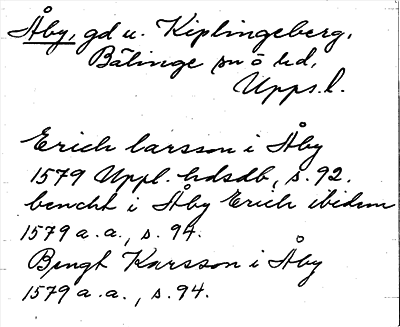 Åby, gd u. Kiplingeberg,
Bälinge sn o hd,
Upps. l.
Erich larsson i Åby
1579 Uppl. hdsdb, s. 92.
bencht i Åby Erich ibidem
1579 a.a., s. 94.
Bengt Karsson i Åby
1579 a.a., s. 94.